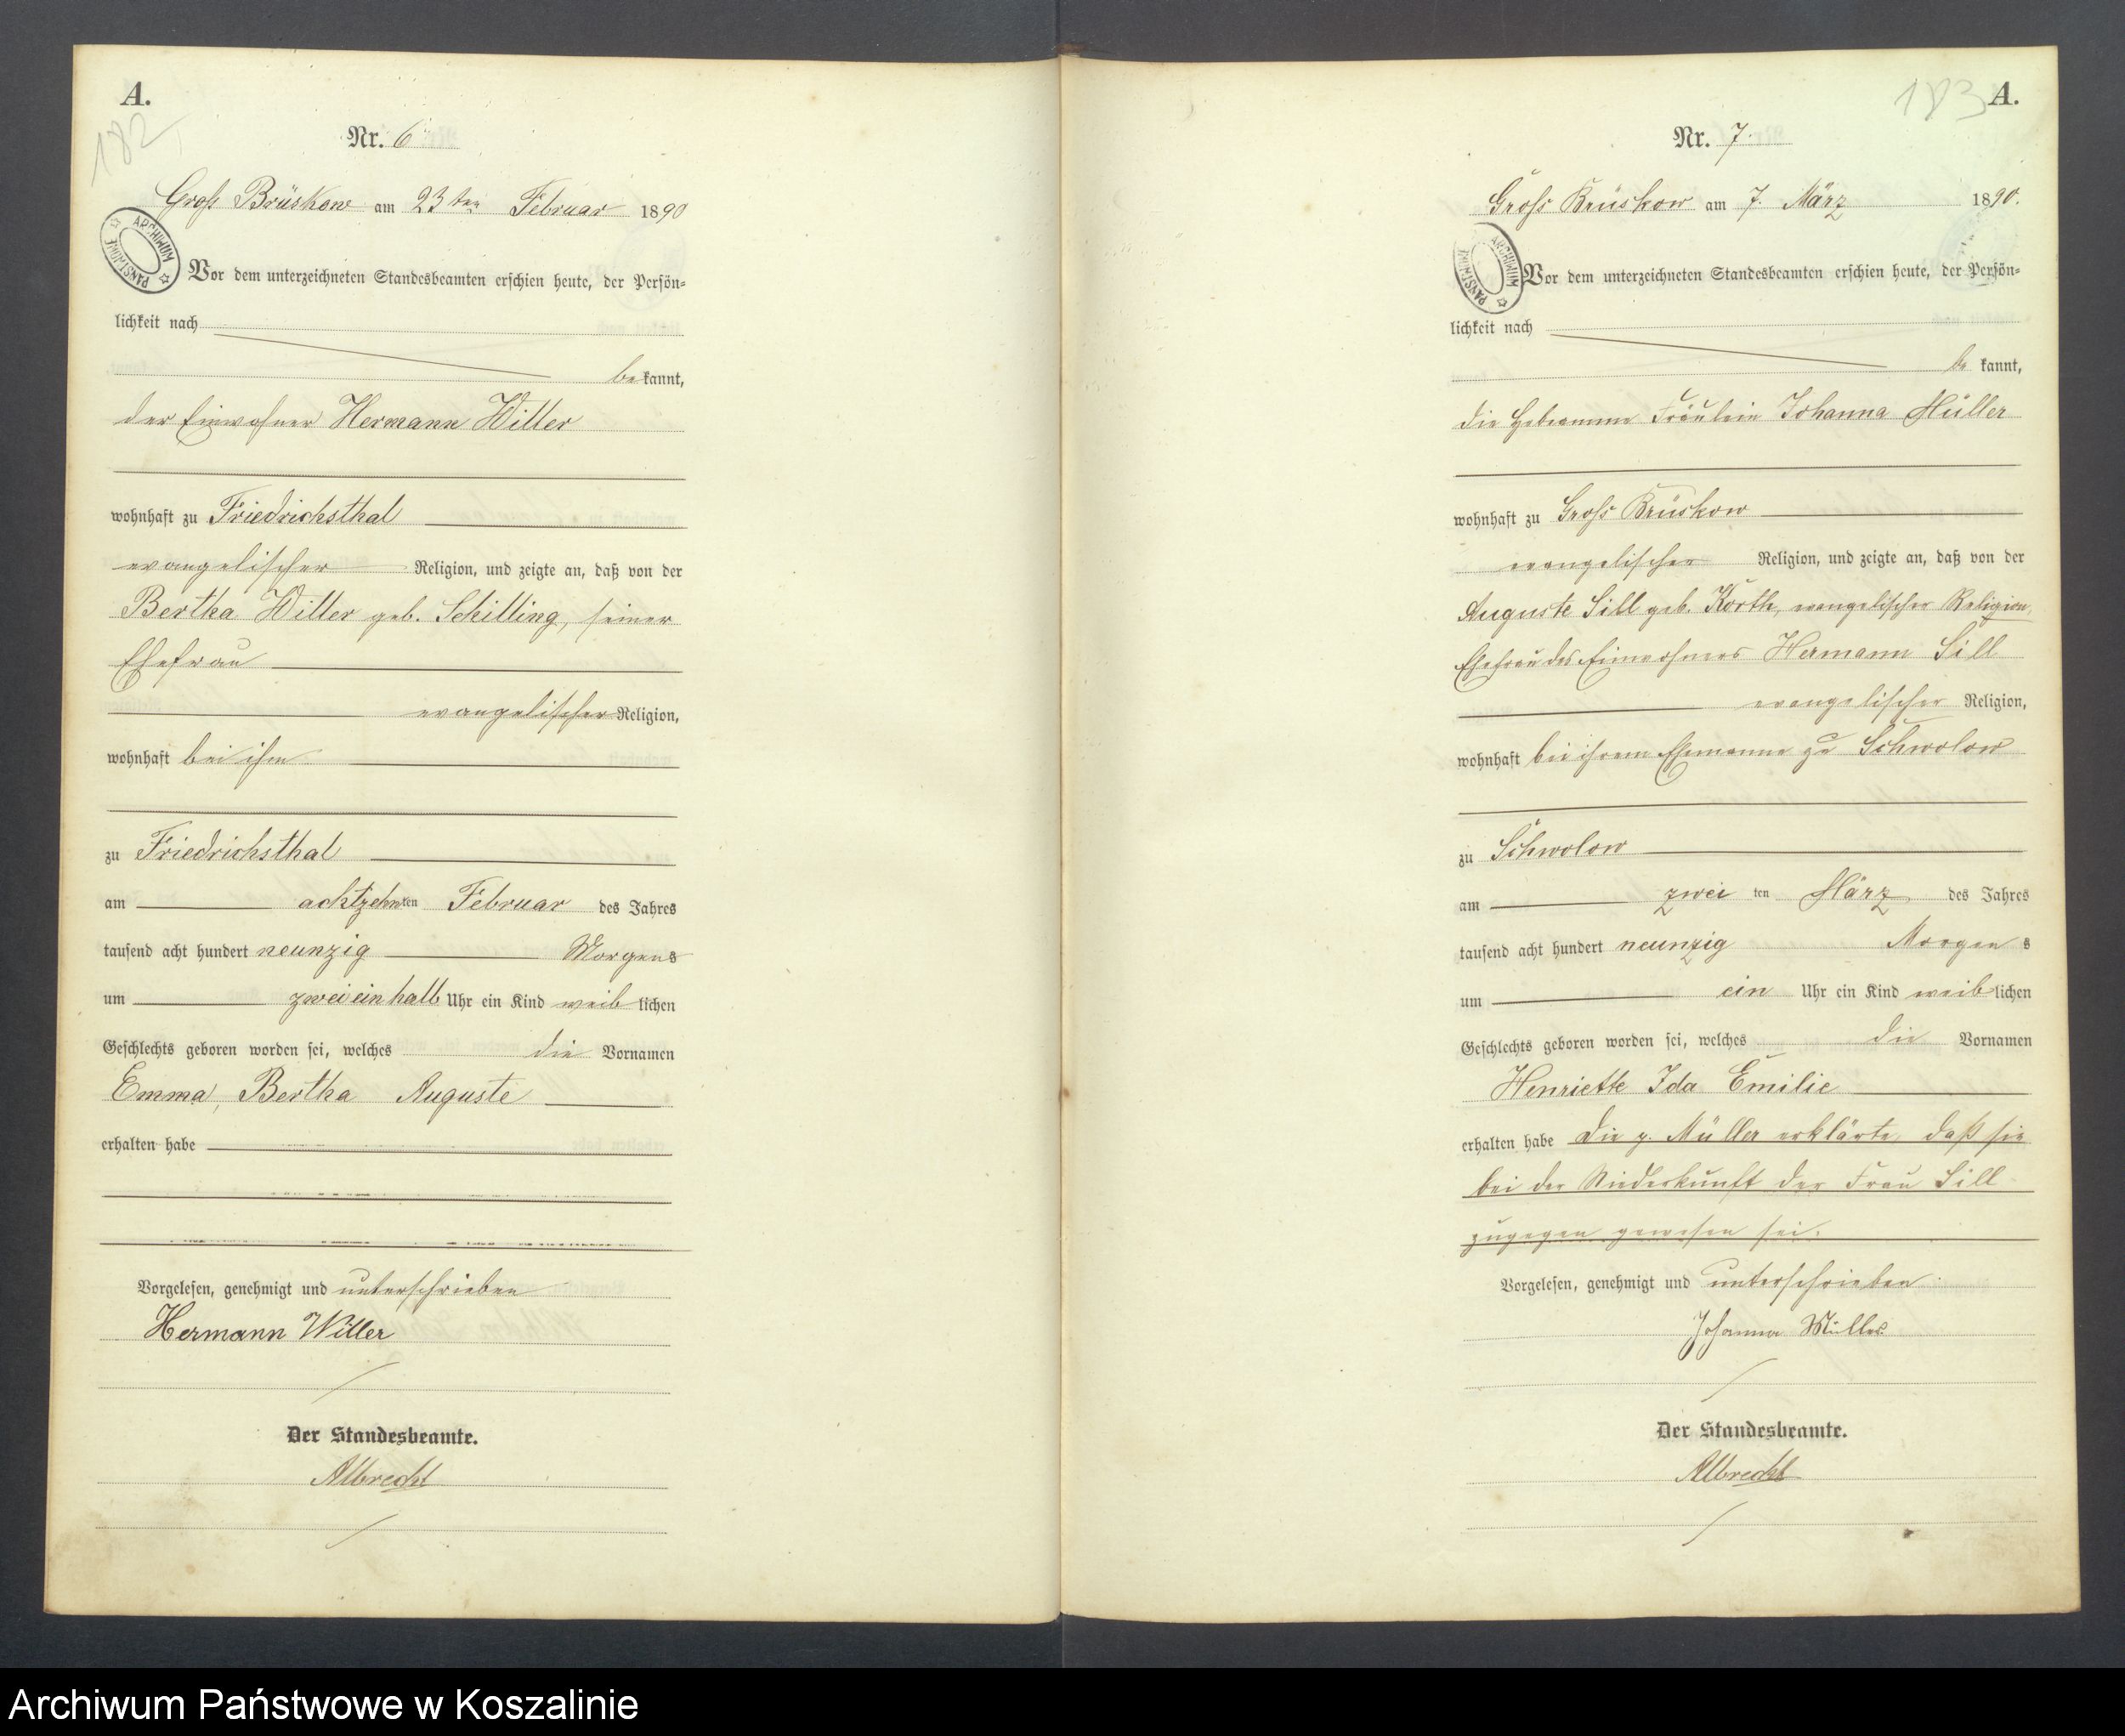 A.
182
Nr. 6
Groß Brüskow am 23ten Februar 1890
ARCHIWUM PAŃSTWOWE
Vor dem unterzeichneten Standesbeamten erschien heute, der Persön-
lichkeit nach
bekannt,
der Einwohner Hermann Witter
wohnhaft zu Friedrichsthal
evangelischer Religion, und zeigte an, daß von der
Bertha Witter geb. Schilling, seiner
Ehefrau
evangelischer Religion,
wohnhaft bei ihm
zu Friedrichsthal
am achtzehnten Februar des Jahres
tausend acht hundert neunzig Morgens
um zwei ein halb Uhr ein Kind weiblichen
Geschlechts geboren worden sei, welches die Vornamen
Emma, Bertha Auguste
erhalten habe
Vorgelesen, genehmigt und unterschrieben
Hermann Witter
Der Standesbeamte.
Albrecht
183
A.
Nr. 7.
Groß Brüskow am 7. März 1890.
ARCHIWUM PAŃSTWOWE
Vor dem unterzeichneten Standesbeamten erschien heute, der Persön-
lichkeit nach
bekannt,
die Hebamme Fräulein Johanna Müller
wohnhaft zu Groß Brüskow
evangelischer Religion, und zeigte an, daß von der
Auguste Sill geb. Korth, evangelischer Religion,
Ehefrau des Einwohners Hermann Sill
evangelischer Religion,
wohnhaft bei ihrem Ehemanne zu Schwolow
zu Schwolow
am zweiten März des Jahres
tausend acht hundert neunzig Morgens
um ein Uhr ein Kind weiblichen
Geschlechts geboren worden sei, welches die Vornamen
Henriette Ida Emilie
erhalten habe die p. Müller erklärte, daß sie
bei der Niederkunft der Frau Sill
zugegen gewesen sei.
Vorgelesen, genehmigt und unterschrieben.
Johanna Müller
Der Standesbeamte.
Albrecht
Archiwum Państwowe w Koszalinie